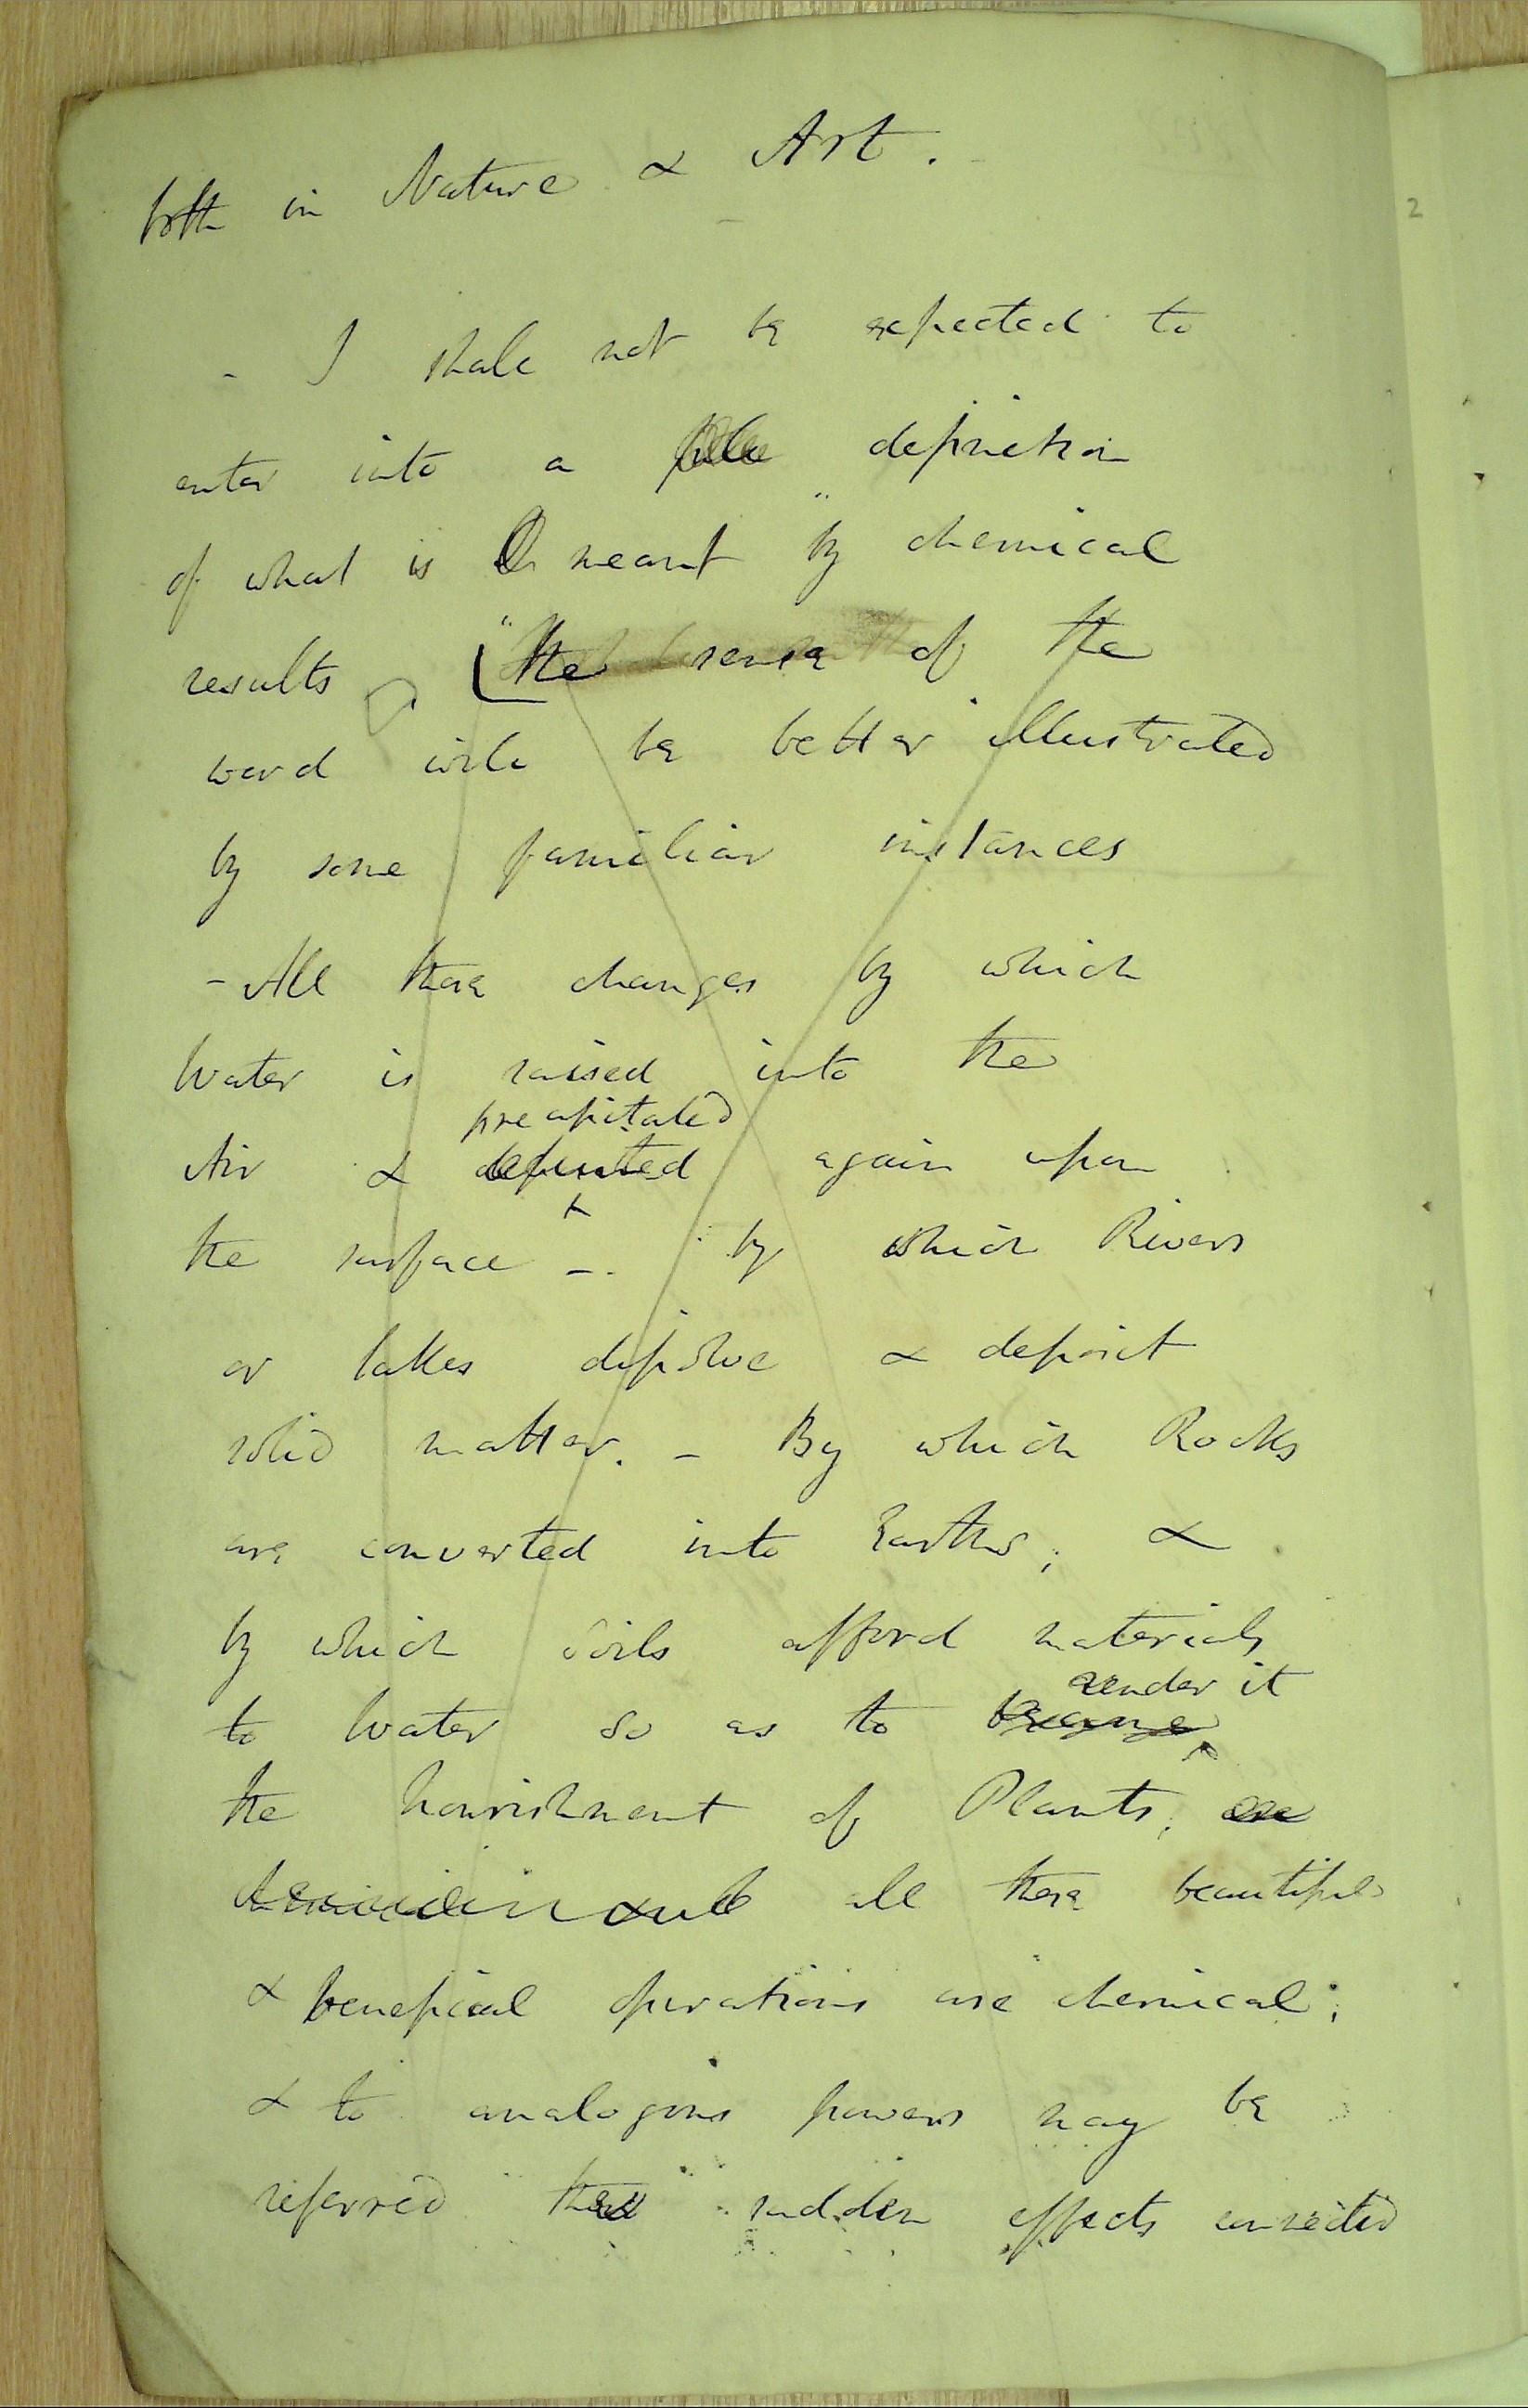 both in Nature & Art.
2
- I shall not be expected to
enter into a full depiction
of what is meant by chemical
results "the sense of the
word will be better illustrated
by some familiar instances
- All these changes by which
Water is raised into the
precipitated
Air & deposited again upon
the surface -. by which Rivers
or lakes dissolve & deposit
solid matter. - By which Rocks
are converted into Earths; &
by which Soils afford materials
render it
to Water so as to become
the nourishment of Plants;
all these beautiful
& beneficial operations are chemical;
& to analogous powers may be
referred the sudden effects connected